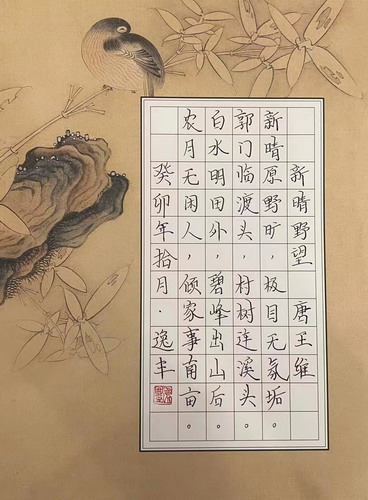 新晴野望 唐 王维
新晴原野旷，极目无氛垢。
郭门临渡头，村树连溪头。
白水明田外，碧峰出山后。
农月无闲人，倾家事南亩。
癸卯年拾月·逸丰